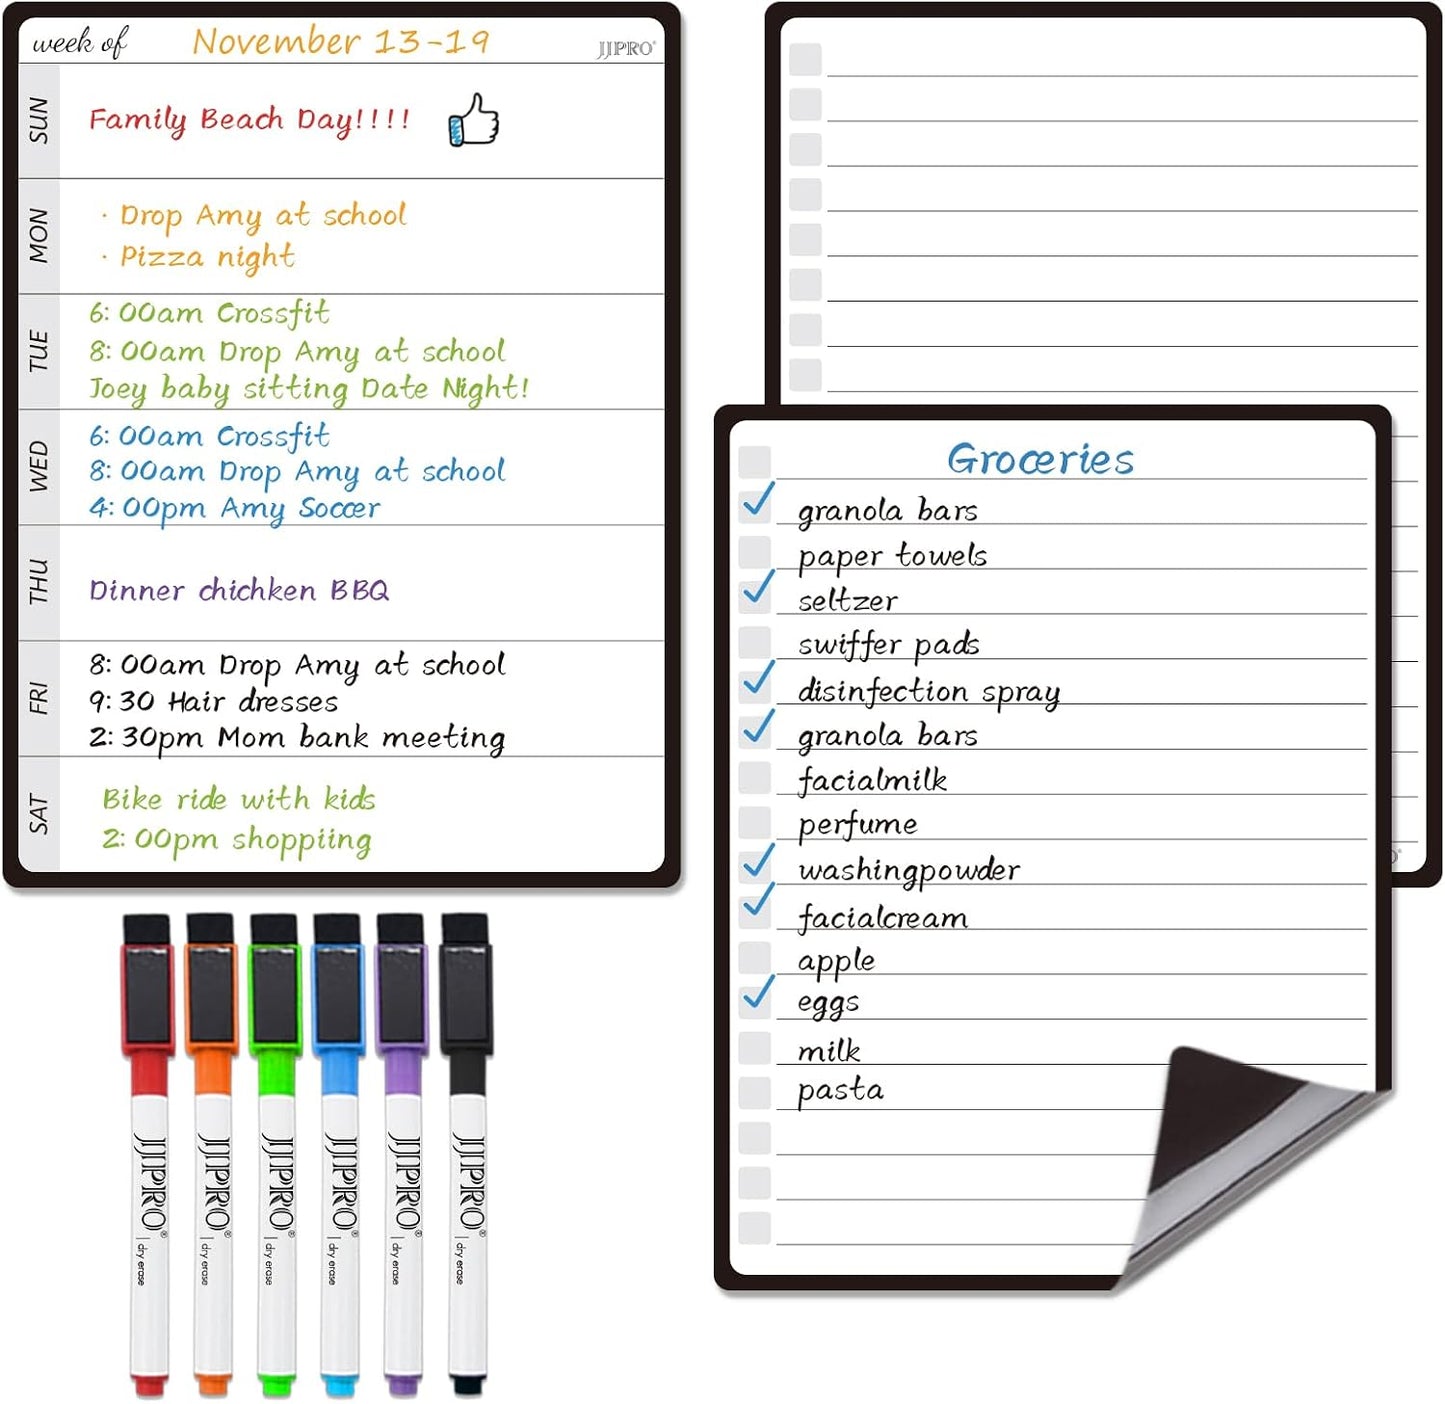 week of November 13-19
JJPRO®
SUN
Family Beach Day!!!!
MON
· Drop Amy at school
· Pizza night
TUE
6:00am Crossfit
8:00am Drop Amy at school
Joey baby sitting Date Night!
WED
6:00am Crossfit
8:00am Drop Amy at school
4:00pm Amy Soccer
THU
Dinner chichken BBQ
FRI
8:00am Drop Amy at school
9:30 Hair dresses
2:30pm Mom bank meeting
SAT
Bike ride with kids
2:00pm shoppiing
Groceries
granola bars
paper towels
seltzer
swiffer pads
disinfection spray
granola bars
facialmilk
perfume
washingpowder
facialcream
apple
eggs
milk
pasta
JJPRO® | dry erase
JJPRO® | dry erase
JJPRO® | dry erase
JJPRO® | dry erase
JJPRO® | dry erase
JJPRO® | dry erase